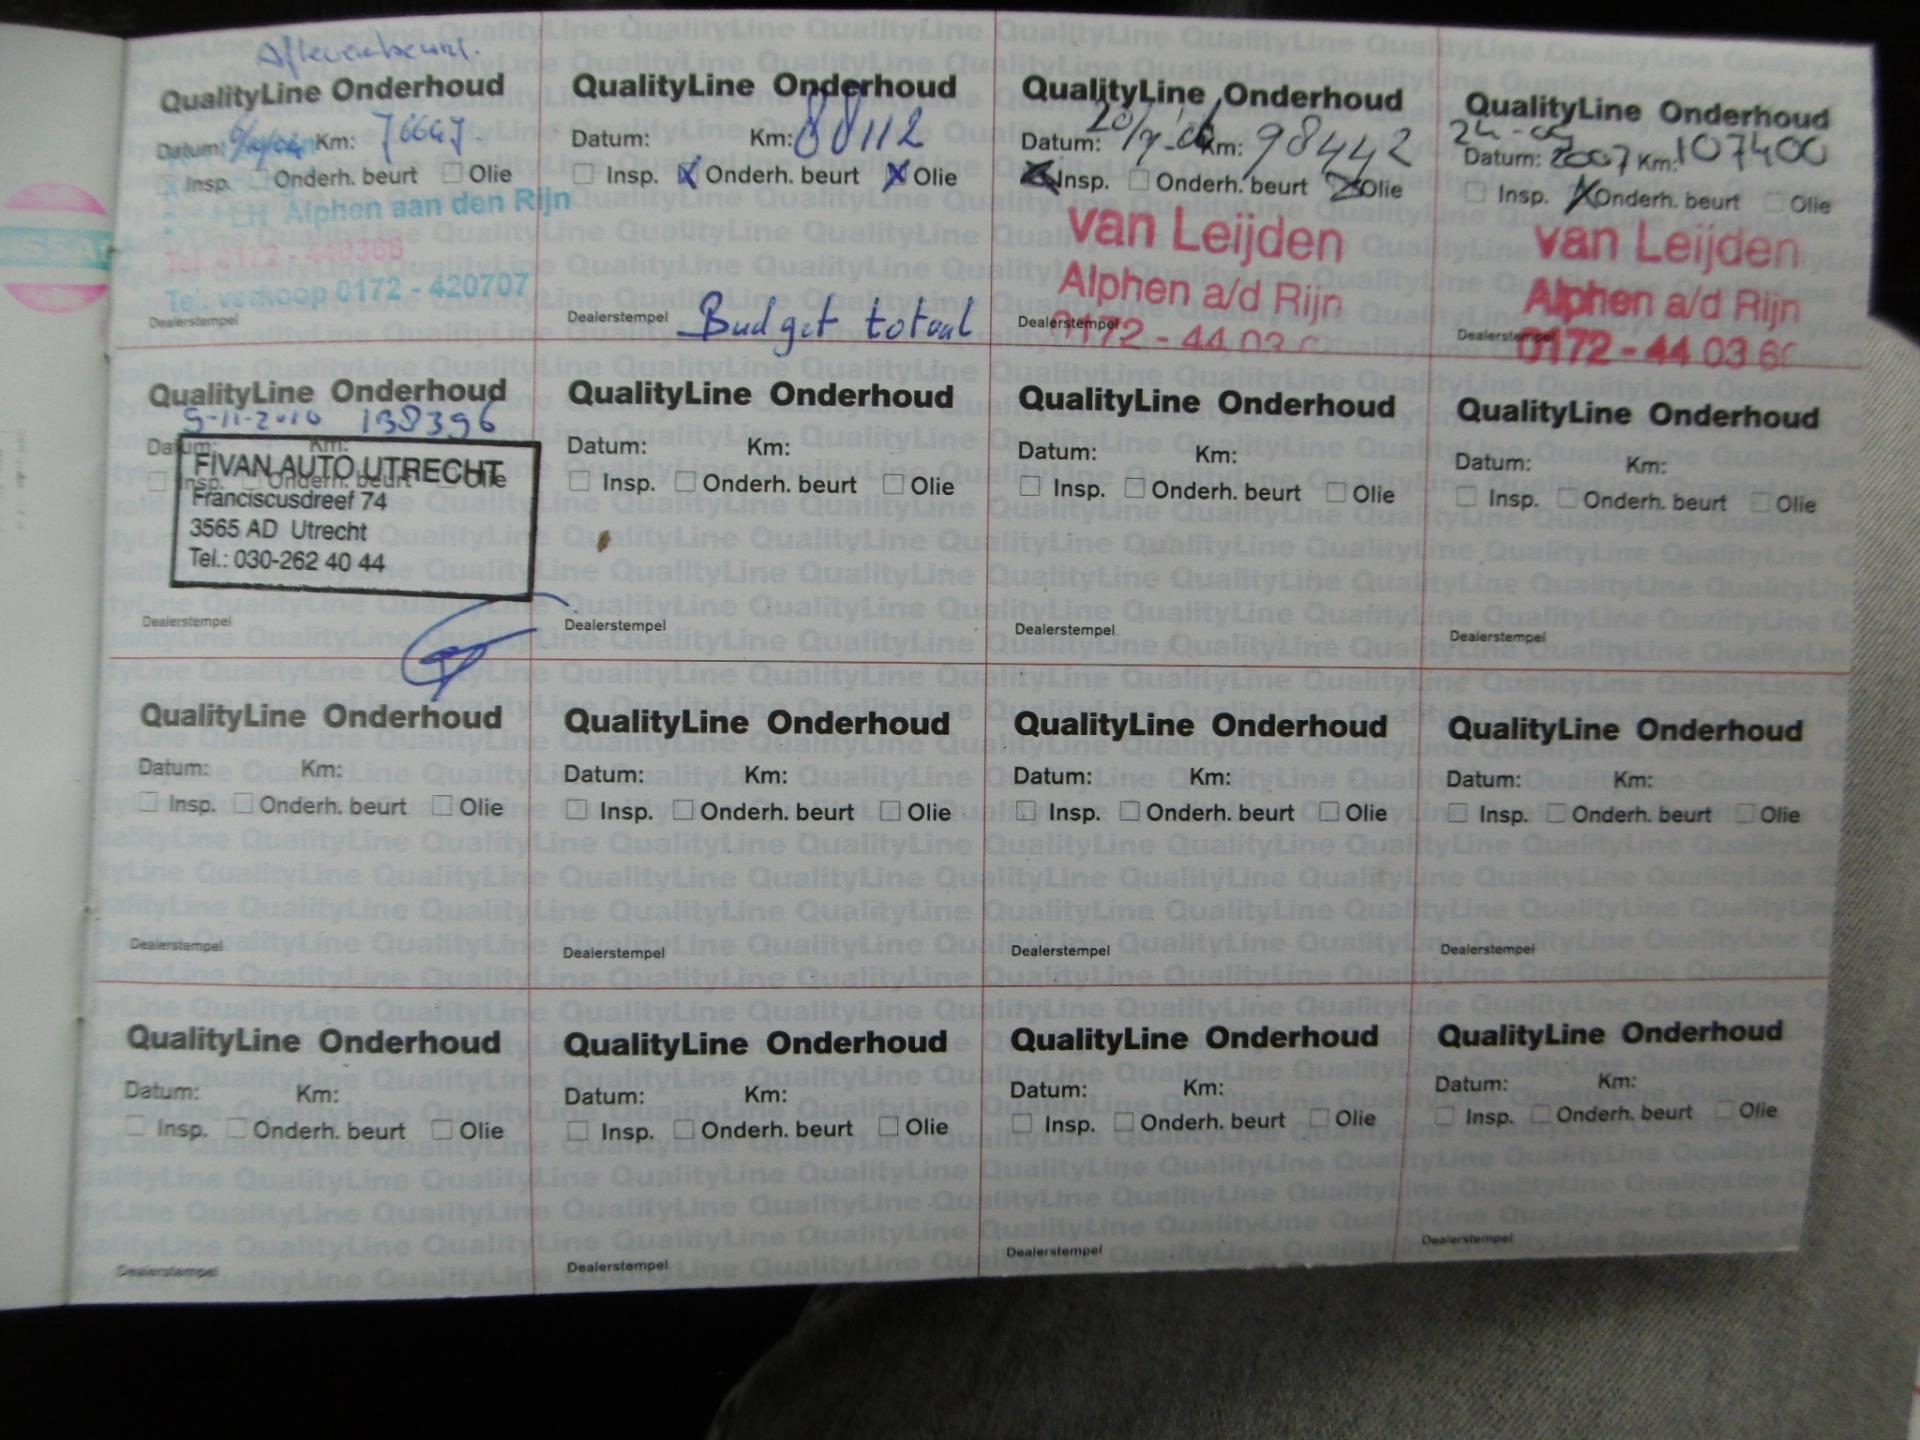 Afleverbeurt.
QualityLine Onderhoud
Datum: Km: 76667.
Insp. Onderh. beurt Olie
Alphen aan den Rijn
Tel. 0172 - 440366
Tel. verkoop 0172 - 420707
Dealerstempel
QualityLine Onderhoud
Datum: Km: 88112
Insp. X Onderh. beurt X Olie
Dealerstempel Budget totaal
QualityLine Onderhoud
Datum: Km: 98442
Insp. Onderh. beurt Olie
van Leijden
Alphen a/d Rijn
Dealerstempel
0172 - 44 03
QualityLine Onderhoud
Datum: 2007 Km: 107400
Insp. X Onderh. beurt Olie
van Leijden
Alphen a/d Rijn
Dealerstempel
0172 - 44 03 66
QualityLine Onderhoud
9-11-2010 138396
Datum: Km:
Insp. Onderh. beurt Olie
FIVAN AUTO UTRECHT
Franciscusdreef 74
3565 AD Utrecht
Tel.: 030-262 40 44
Dealerstempel
QualityLine Onderhoud
Datum: Km:
Insp. Onderh. beurt Olie
Dealerstempel
QualityLine Onderhoud
Datum: Km:
Insp. Onderh. beurt Olie
Dealerstempel
QualityLine Onderhoud
Datum: Km:
Insp. Onderh. beurt Olie
Dealerstempel
QualityLine Onderhoud
Datum: Km:
Insp. Onderh. beurt Olie
Dealerstempel
QualityLine Onderhoud
Datum: Km:
Insp. Onderh. beurt Olie
Dealerstempel
QualityLine Onderhoud
Datum: Km:
Insp. Onderh. beurt Olie
Dealerstempel
QualityLine Onderhoud
Datum: Km:
Insp. Onderh. beurt Olie
Dealerstempel
QualityLine Onderhoud
Datum: Km:
Insp. Onderh. beurt Olie
Dealerstempel
QualityLine Onderhoud
Datum: Km:
Insp. Onderh. beurt Olie
Dealerstempel
QualityLine Onderhoud
Datum: Km:
Insp. Onderh. beurt Olie
Dealerstempel
QualityLine Onderhoud
Datum: Km:
Insp. Onderh. beurt Olie
Dealerstempel